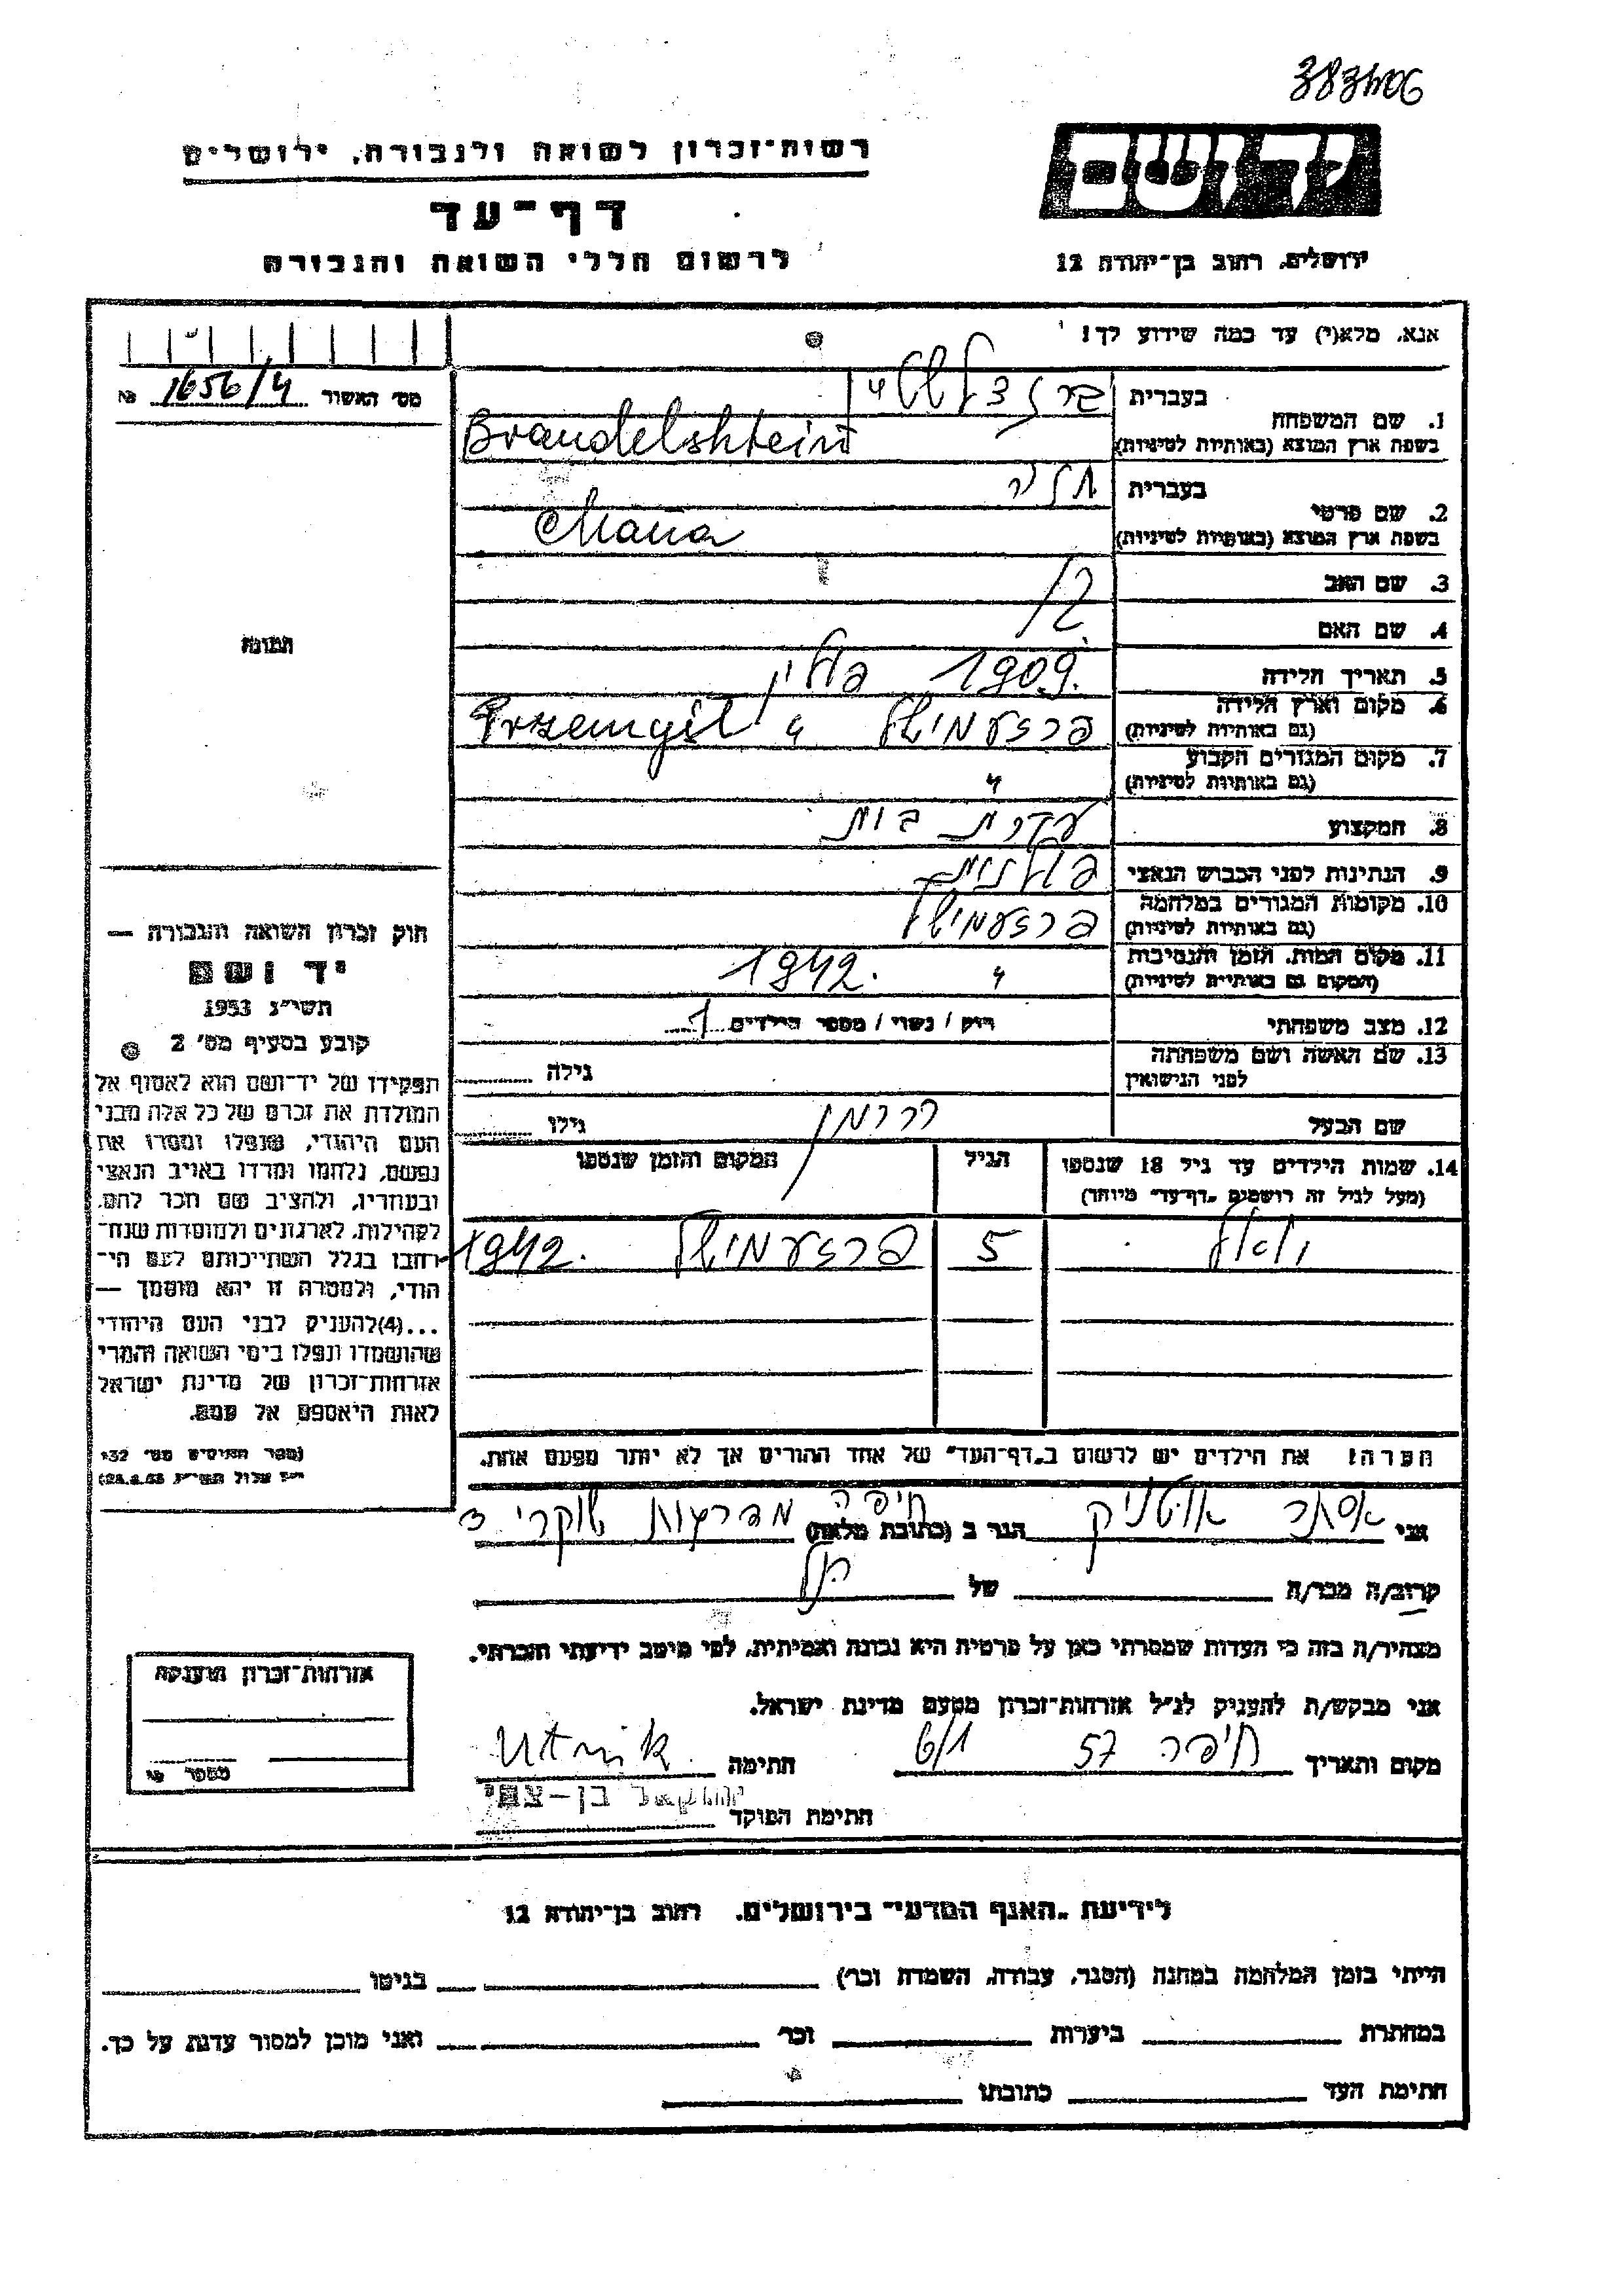 383406
יד ושם
רשות־זכרון לשואה ולגבורה, ירושלים
דף־עד
לרשום חללי השואה והגבורה
ירושלים, רחוב בן־יהודה 12
אנא, מלא(י) עד כמה שידוע לך!
מס׳ האשור 1656/4 №
1. שם המשפחה
בעברית
בשפת ארץ המוצא (באותיות לטיניות) Brandelshtein
2. שם פרטי
בעברית
בשפת ארץ המוצא (באותיות לטיניות) Mania
3. שם האב
4. שם האם
תמונה
5. תאריך הלידה 1909. פולין
6. מקום וארץ הלידה
(גם באותיות לטיניות) פרזעמישל " Przemysil
7. מקום המגורים הקבוע
(גם באותיות לטיניות) "
8. המקצוע עקרת בית
9. הנתינות לפני הכבוש הנאצי פולנית
10. מקומות המגורים במלחמה
(גם באותיות לטיניות) פרזעמישל
11. מקום המות, הזמן והנסיבות
(המקום גם באותיות לטיניות) " 1942.
12. מצב משפחתי רווק / נשוי / מספר הילדים 1
13. שם האשה ושם משפחתה
לפני הנישואין
גילה
שם הבעל הרמן גילו
14. שמות הילדים עד גיל 18 שנספו
(מעל לגיל זה רושמים „דף־עד״ מיוחד)
הגיל
המקום והזמן שנספו
5 פרזעמישל 1942.
חוק זכרון השואה והגבורה —
יד ושם
תשי״ג 1953
קובע בסעיף מס׳ 2
תפקידו של יד־ושם הוא לאסוף אל
המולדת את זכרם של כל אלה מבני
העם היהודי, שנפלו ומסרו את
נפשם, נלחמו ומרדו באויב הנאצי
ובעוזריו, ולהציב שם וזכר להם,
לקהילות, לארגונים ולמוסדות שנח־
רבו בגלל השתייכותם לעם הי־
הודי, ולמטרה זו יהא מוסמך —
...(4)להעניק לבני העם היהודי
שהושמדו ונפלו בימי השואה והמרי
אזרחות־זכרון של מדינת ישראל
לאות היאספם אל עמם.
(ספר החוקים מס׳ 132
י״ז אלול תשי״ג, 28.8.53)
הערה! את הילדים יש לרשום ב„דף־העד״ של אחד ההורים אך לא יותר מפעם אחת.
אני אסתר אוטניק הגר ב (כתובת מלאה) חיפה
קרוב/ה מכר/ה של הנ״ל
מצהיר/ה בזה כי העדות שמסרתי כאן על פרטיה היא נכונה ואמיתית, לפי מיטב ידיעתי והכרתי.
אני מבקש/ת להעניק לנ״ל אזרחות־זכרון מטעם מדינת ישראל.
מקום ותאריך חיפה 57 6/1 חתימה Utnik
חתימת הפוקד
אזרחות־זכרון הוענקה
מספר
לידיעת „האגף המדעי״ בירושלים, רחוב בן־יהודה 12
הייתי בזמן המלחמה במחנה (הסגר, עבודה, השמדה וכו׳) בגיטו
במחתרת ביערות וכו׳ ואני מוכן למסור עדות על כך.
חתימת העד כתובתו